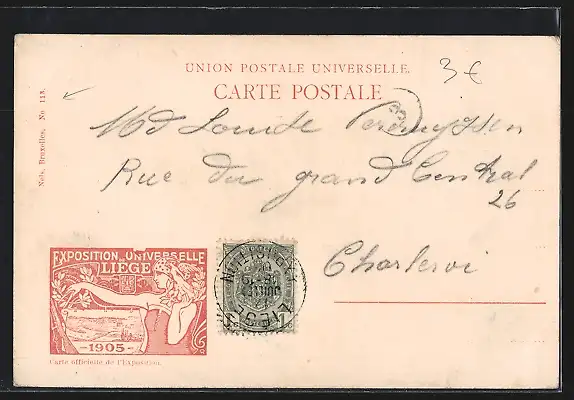 UNION POSTALE UNIVERSELLE.
CARTE POSTALE
3€
Nels, Bruxelles. No. 113.
Md
Rue du grand Central
26
Charleroi
EXPOSITION UNIVERSELLE
LIEGE
-1905-
Carte officielle de l'Exposition.
1 1